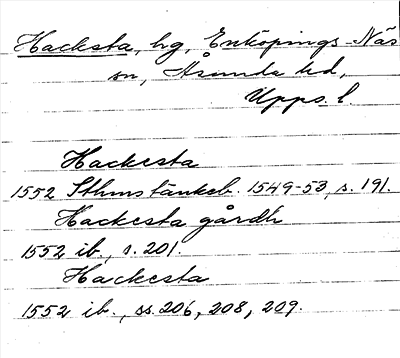 Hacksta, hg, Enköpings-Näs
sn, Åsunda hd,
Upps. l.
Hackesta
1552 Sthms tänkeb. 1549-53, s. 191.
Hackesta gårdh
1552 ib., s. 201
Hackesta
1552 ib., ss. 206, 208, 209.